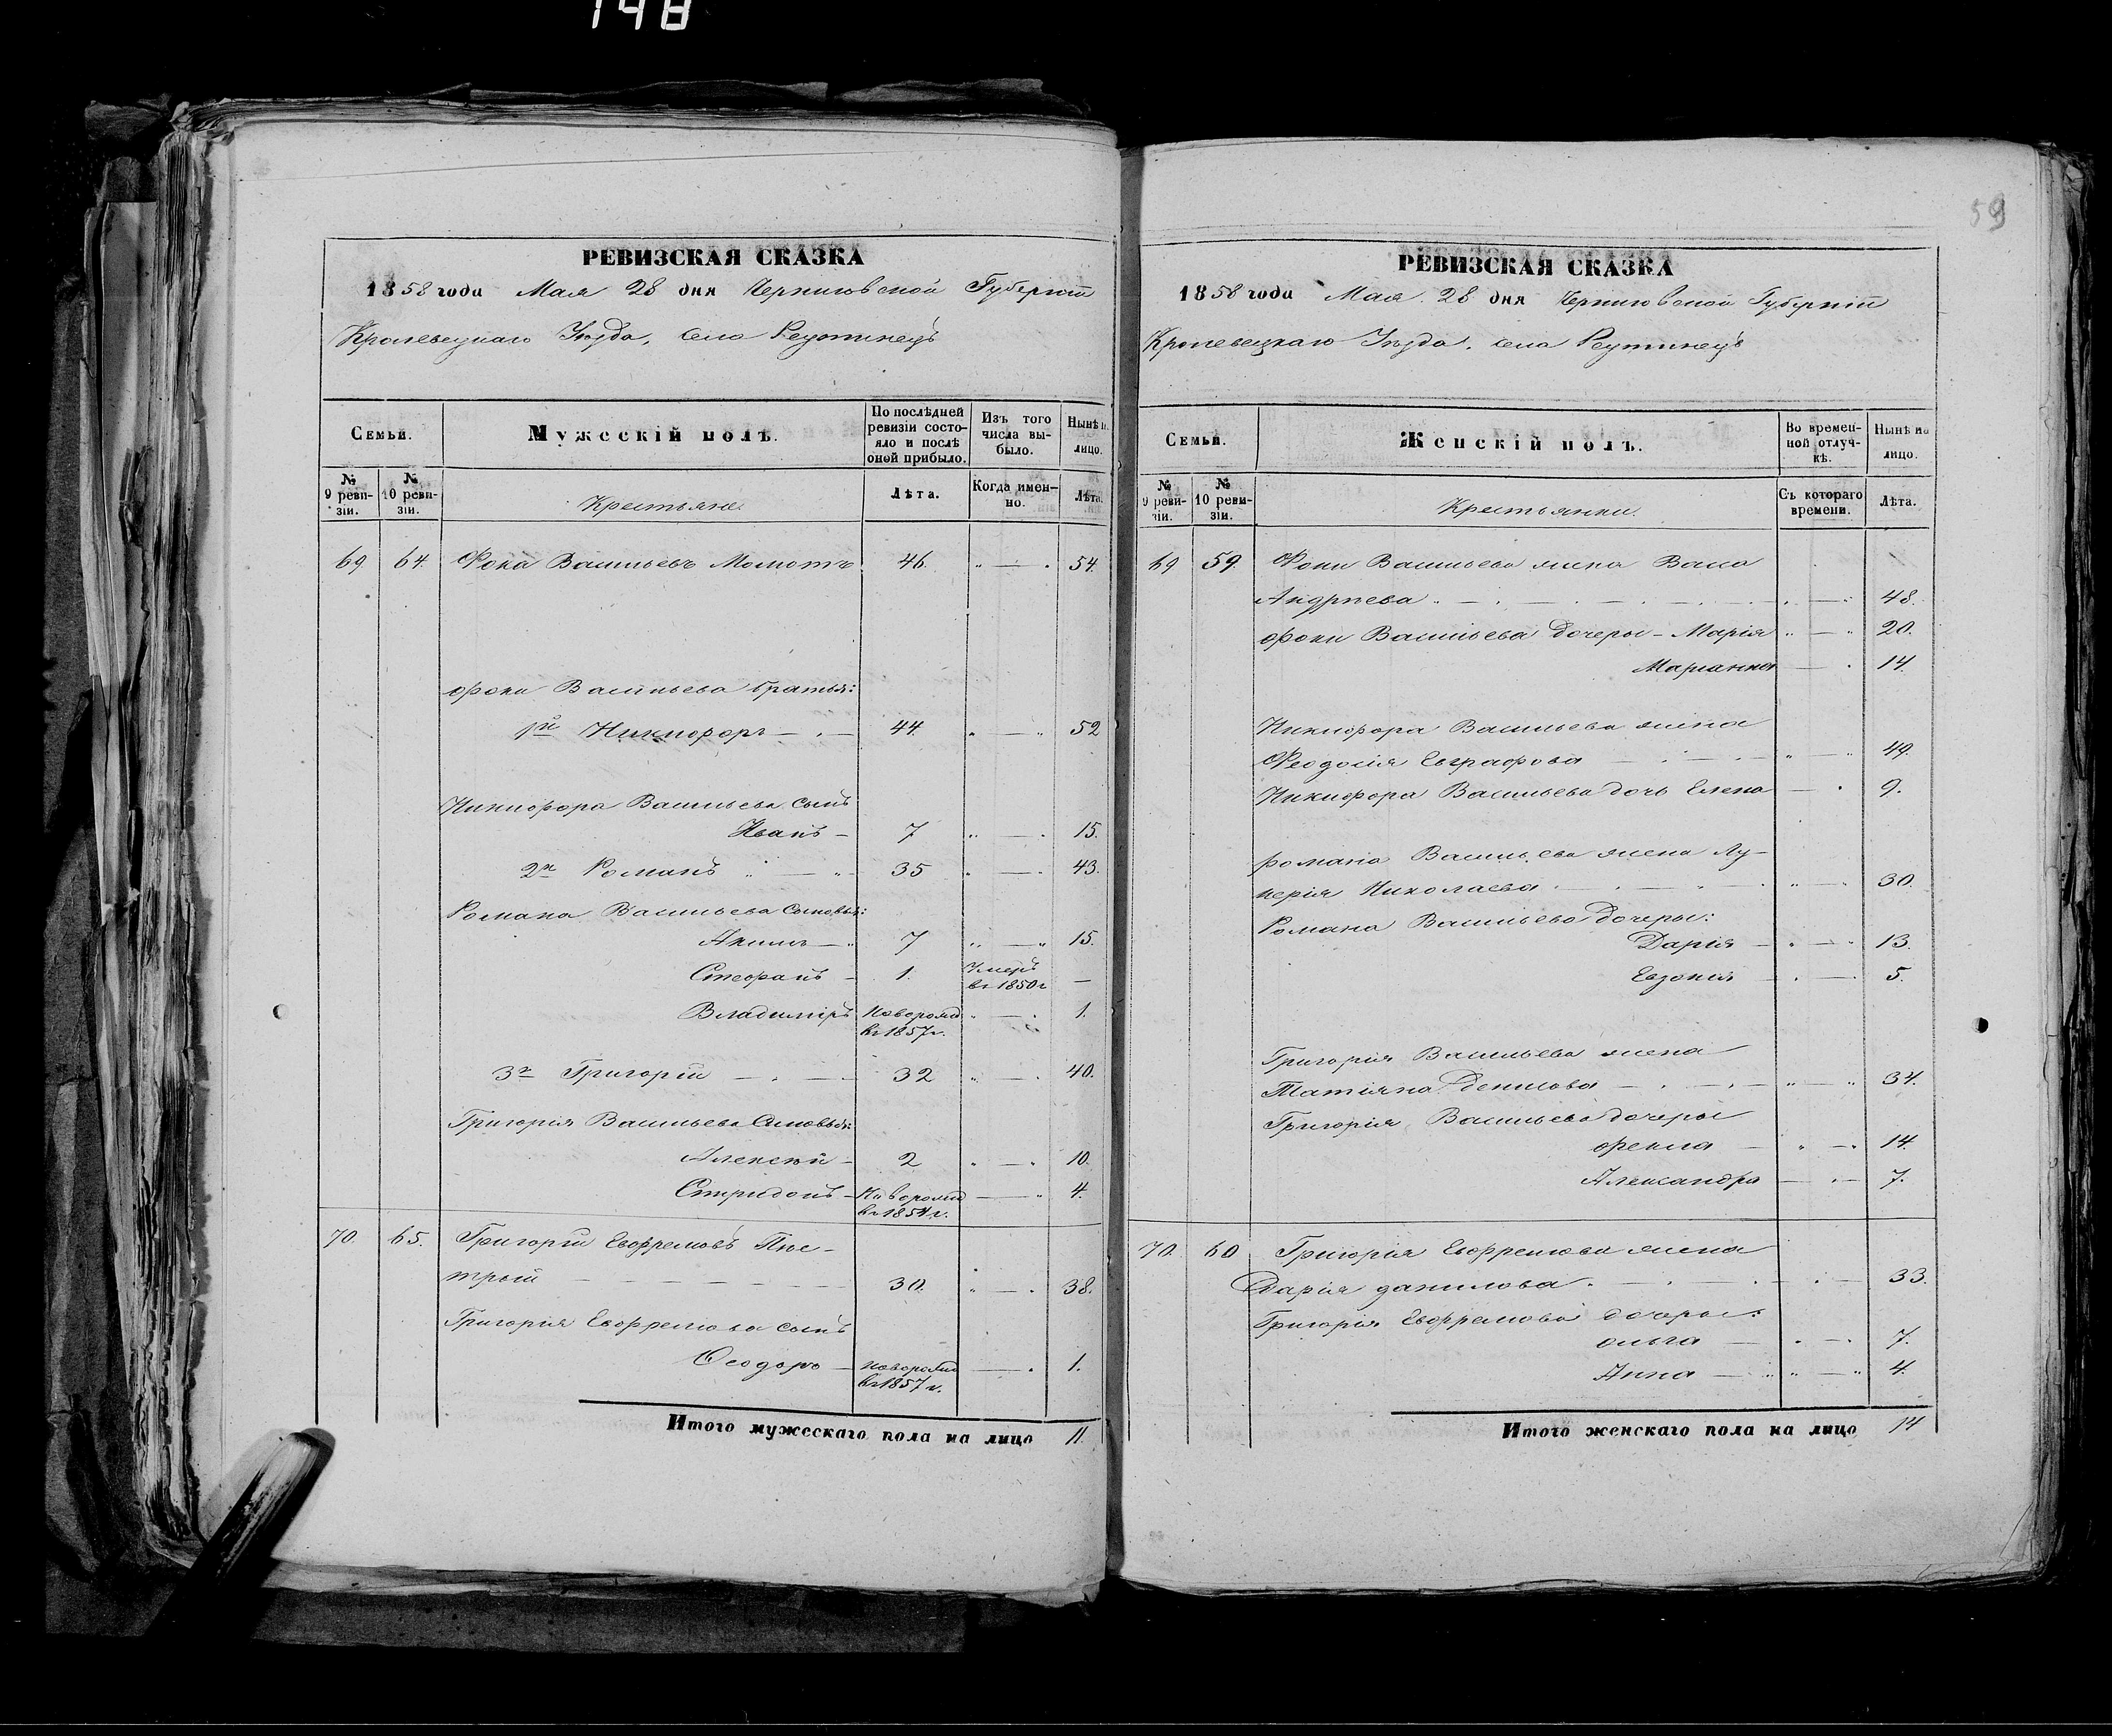 148
59
РЕВИЗСКАЯ СКАЗКА
1858 года Мая 28 дня Черниговской Губерніи
Кролевецкаго Уѣзда, села Реутинецъ
Семьи.
Мужескій полъ.
По послѣдней ревизіи состояло и послѣ оной прибыло.
Изъ того числа выбыло.
Нынѣ на лицо.
№ 9 ревизіи.
№ 10 ревизіи.
Крестьяне.
Лѣта.
Когда именно.
Лѣта.
69 64. Фока Васильевъ Момотъ 46. 54.
Фоки Васильева братья:
1й Никифоръ 44. 52
Никифора Васильева сынъ
Иванъ 7 15.
2й Романъ 35 43.
Романа Васильева сыновья:
Акимъ 7 15.
Стефанъ 1. Умеръ въ 1850 г —
Владиміръ Новорожд въ 1857 г. 1.
3й Григорій 32 40.
Григорія Васильева сыновья:
Алексѣй 2 10.
Спиридонъ Новорожд въ 1854 г. 4.
70 65. Григорій Евфремовъ Пис-
трый 30. 38.
Григорія Евфремова сынъ
Ѳеодоръ новорожд въ 1857 г. 1.
Итого мужескаго пола на лицо 11.
РЕВИЗСКАЯ СКАЗКА
1858 года Мая 28 дня Черниговской Губерніи
Кролевецкаго Уѣзда, села Реутинецъ
Семьи.
Женскій полъ.
Во временной отлучкѣ.
Нынѣ на лицо.
№ 9 ревизіи.
№ 10 ревизіи.
Крестьянки.
Съ котораго времени.
Лѣта.
69 59. Фоки Васильева жена Васа
Андреева 48.
Фоки Васильева дочеры - Марія 20.
Марианна 14.
Никифора Васильева жена
Феодосія Евграфова 49.
Никифора Васильева дочь Елена 9.
Романа Васильева жена Лу-
керія Николаева 30.
Романа Васильева дочеры:
Дарія 13.
Евдокия 5.
Григорія Васильева жена
Татіяна Денисова 34.
Григорія Васильева дочеры
Фекла 14.
Александра 7.
70. 60 Григорія Евфремова жена
Дарія Данилова 33.
Григорія Евфремова дочеры:
Ольга 7.
Анна 4.
Итого женскаго пола на лицо 14